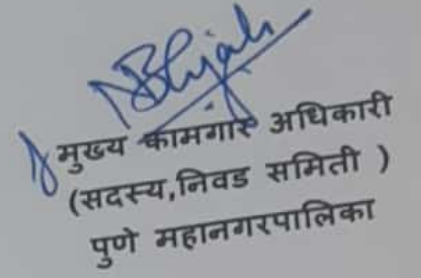 मुख्य कामगार अधिकारी
(सदस्य,निवड समिती )
पुणे महानगरपालिका